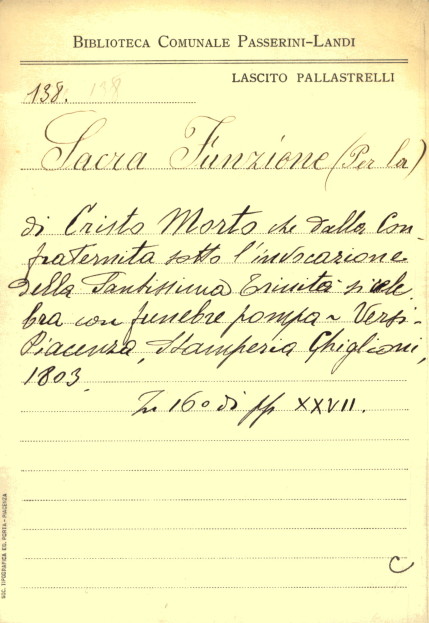 BIBLIOTECA COMUNALE PASSERINI-LANDI
LASCITO PALLASTRELLI
138. 138
Sacra Funzione (Per la)
di Cristo Morto che dalla Con
fraternita sotto l'invocazione
della Santissima Trinità si cele
bra con funebre pompa - Versi -
Piacenza, Stamperia Ghiglioni,
1803.
In 16° di pp XXVII.
C
SOC. TIPOGRAFICA ED. PORTA - PIACENZA